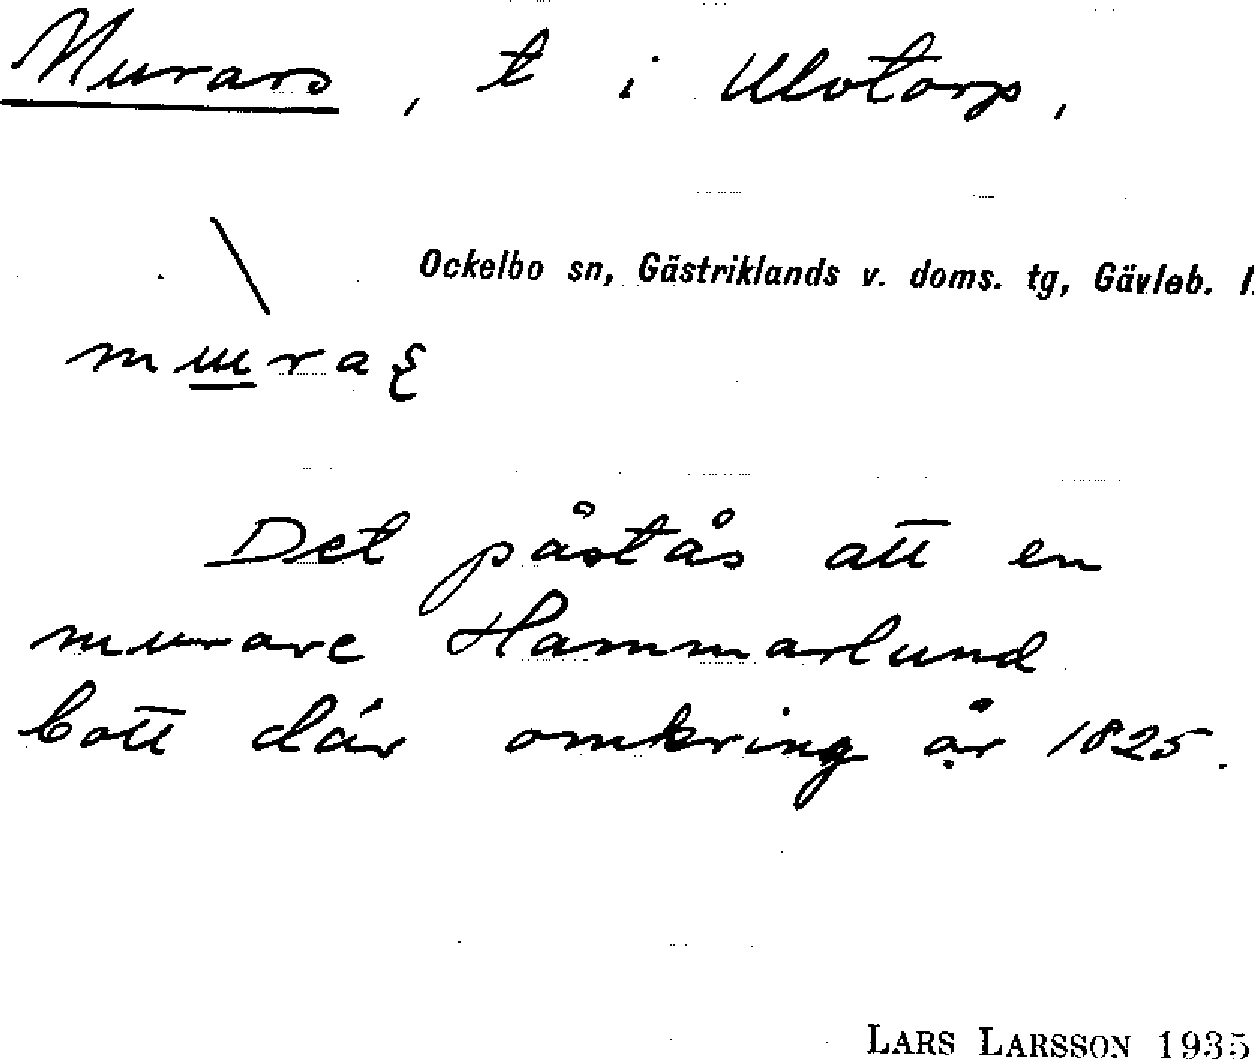 Murars, t i Ulvtorp,
Ockelbo sn, Gästriklands v. doms. tg, Gävleb. l.
Det påstås att en
murare Hammarlund
bott där omkring år 1825.
LARS LARSSON 1935